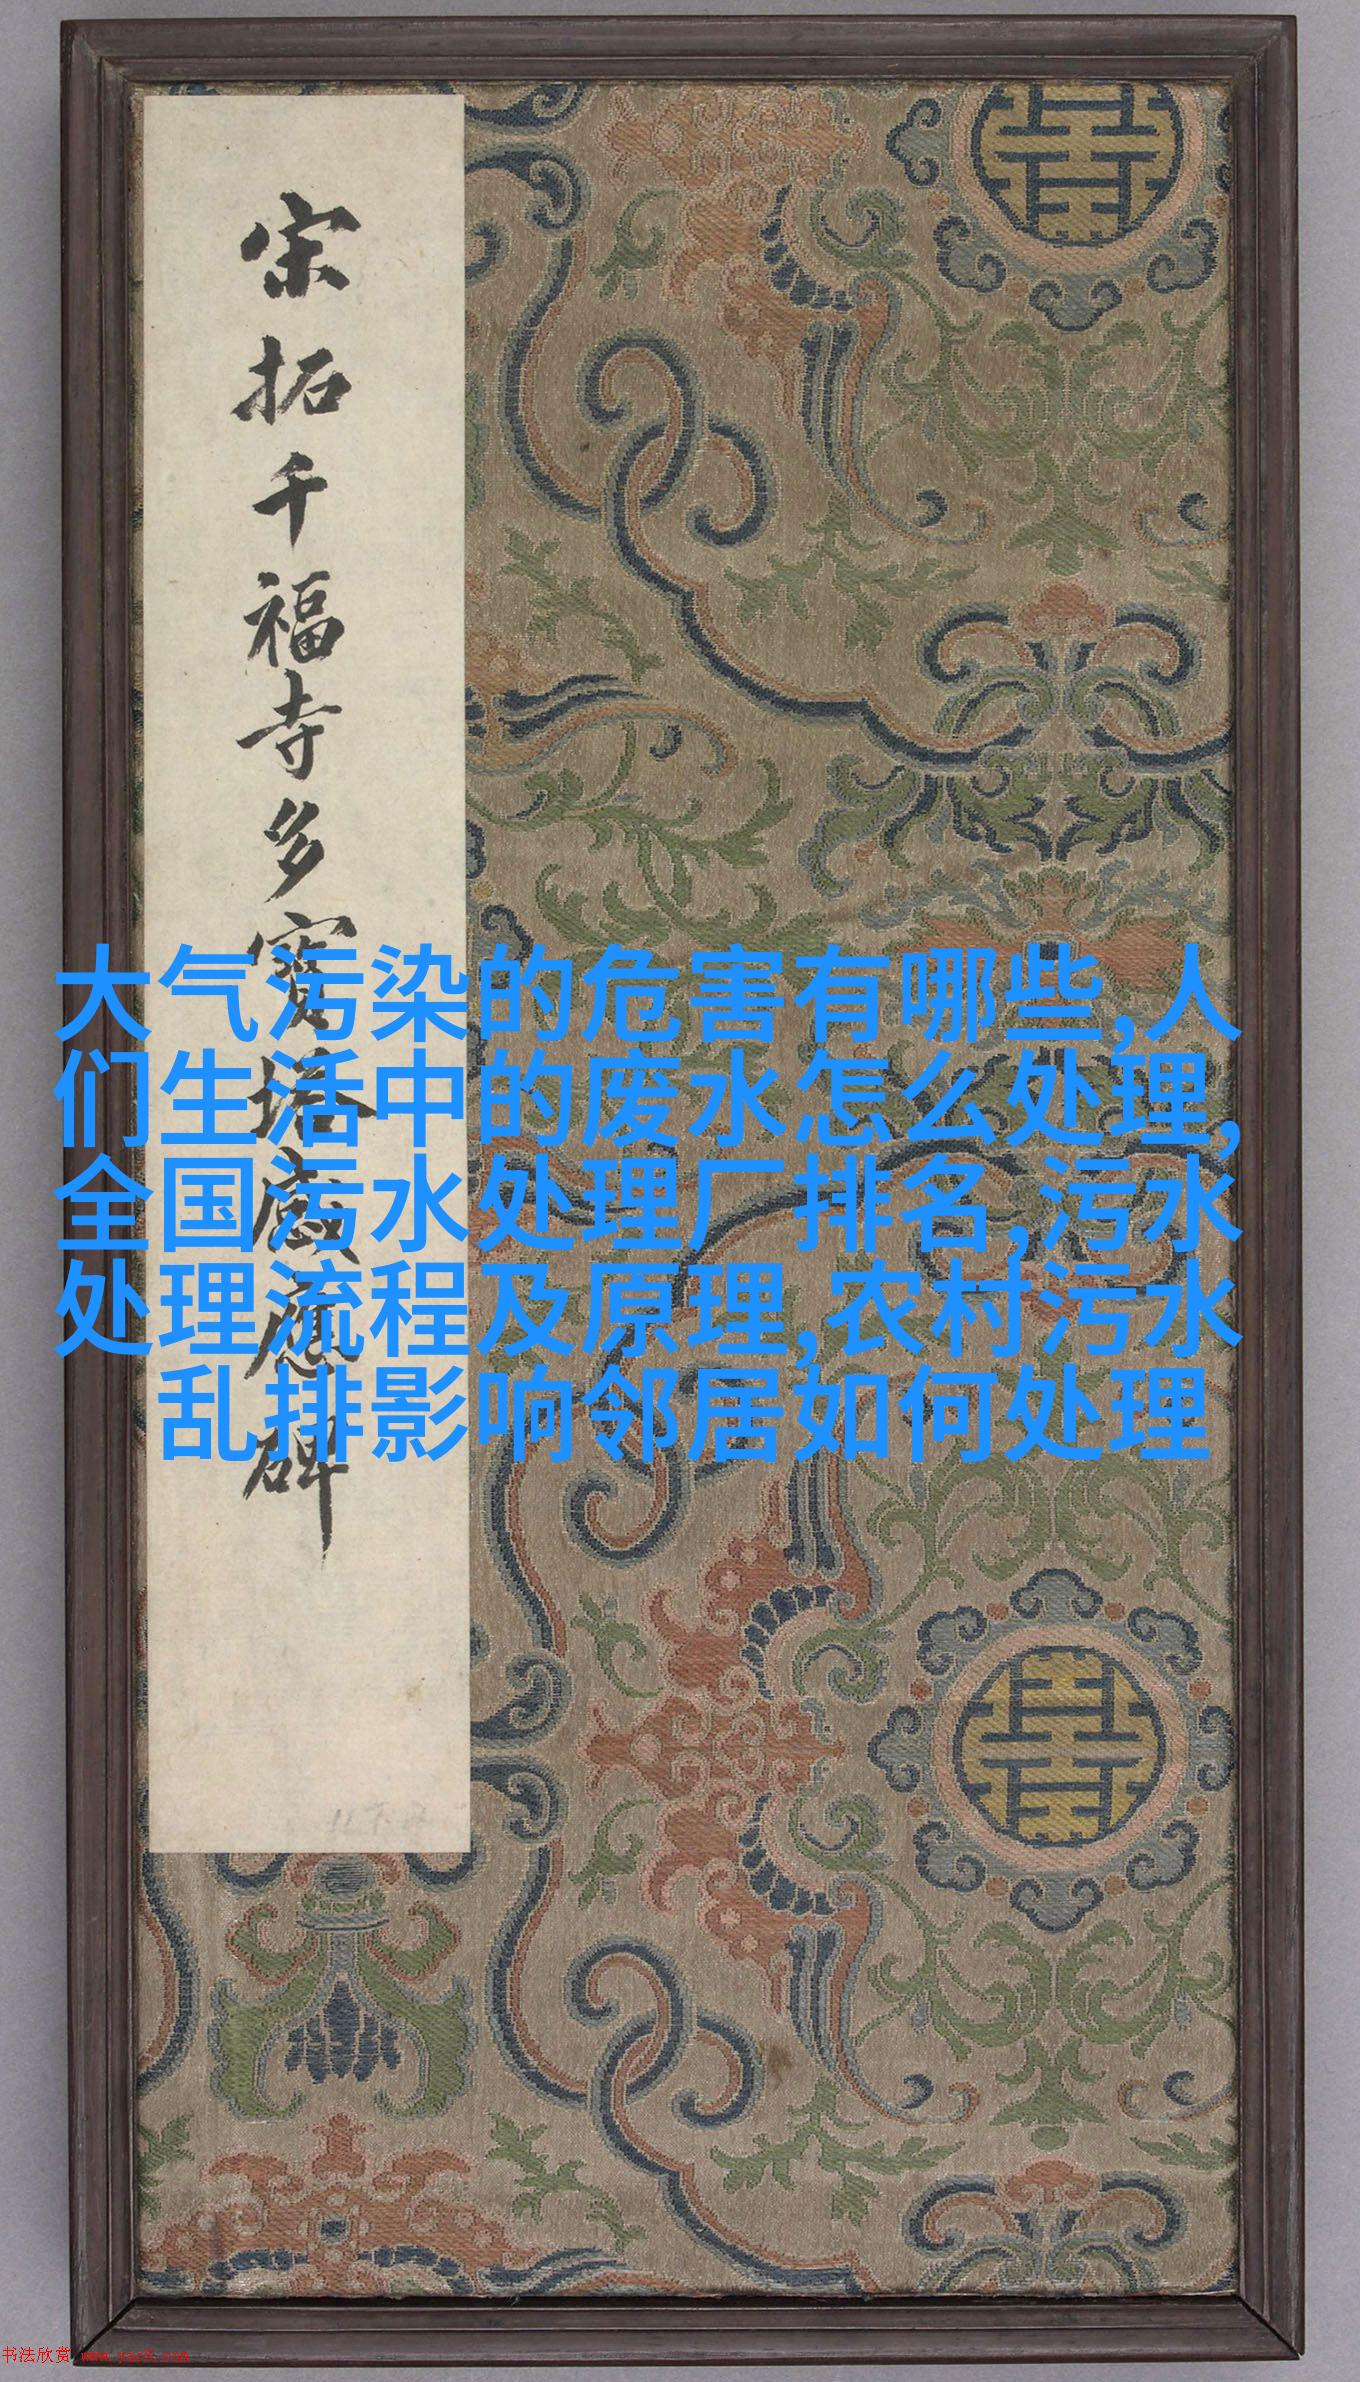 宋拓千福寺多寳塔感應碑
大气污染的危害有哪些,人
们生活中的废水怎么处理,
全国污水处理厂排名,污水
处理流程及原理,农村污水
乱排影响邻居如何处理
书法欣赏 www.yac8.com